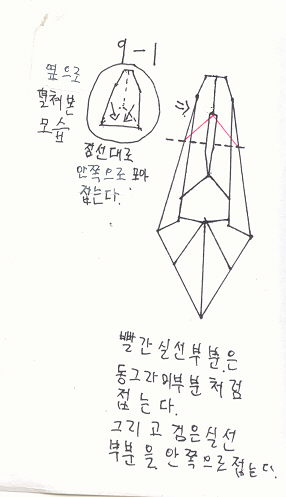 9-1
옆으로
펼쳐본
모습
점선대로
안쪽으로 모아
접는다.
빨간실선부분은
동그라미부분처럼
접는다.
그리고 검은실선
부분을 안쪽으로접는다.